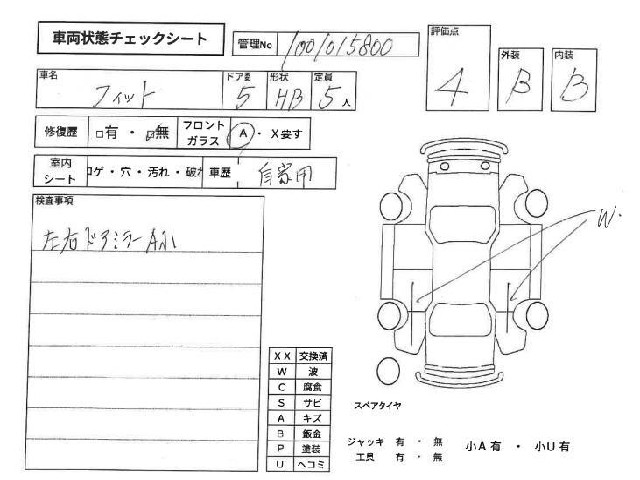 車両状態チェックシート
管理No 1001015800
評価点 4
外装 B
内装 B
車名 フィット
ドア数 5
形状 HB
定員 5人
修復歴 □有・☑無
フロントガラス A・X要す
室内シート コゲ・穴・汚れ・破れ
車歴 自家用
検査事項
左右ドアミラーA小
W
XX 交換済
W 波
C 腐食
S サビ
A キズ
B 鈑金
P 塗装
U ヘコミ
スペアタイヤ
ジャッキ 有・無
工具 有・無
小A有・小U有